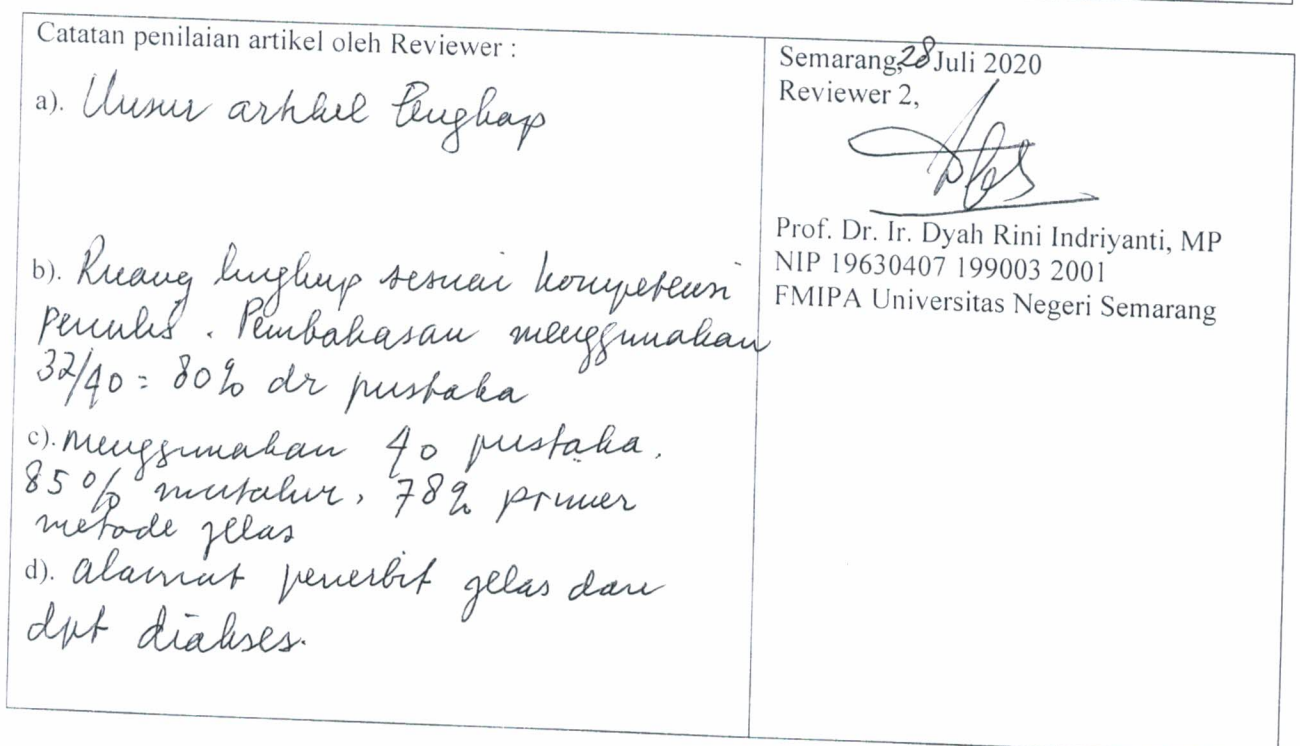 Catatan penilaian artikel oleh Reviewer :
a). Unsur artikel lengkap
b). Ruang lingkup sesuai kompetensi
penulis. Pembahasan menggunakan
32/40 = 80% dr pustaka
c). menggunakan 40 pustaka.
85% mutahir, 78% primer
metode jelas
d). alamat penerbit jelas dan
dpt diakses.
Semarang, 28 Juli 2020
Reviewer 2,
Prof. Dr. Ir. Dyah Rini Indriyanti, MP
NIP 19630407 199003 2001
FMIPA Universitas Negeri Semarang